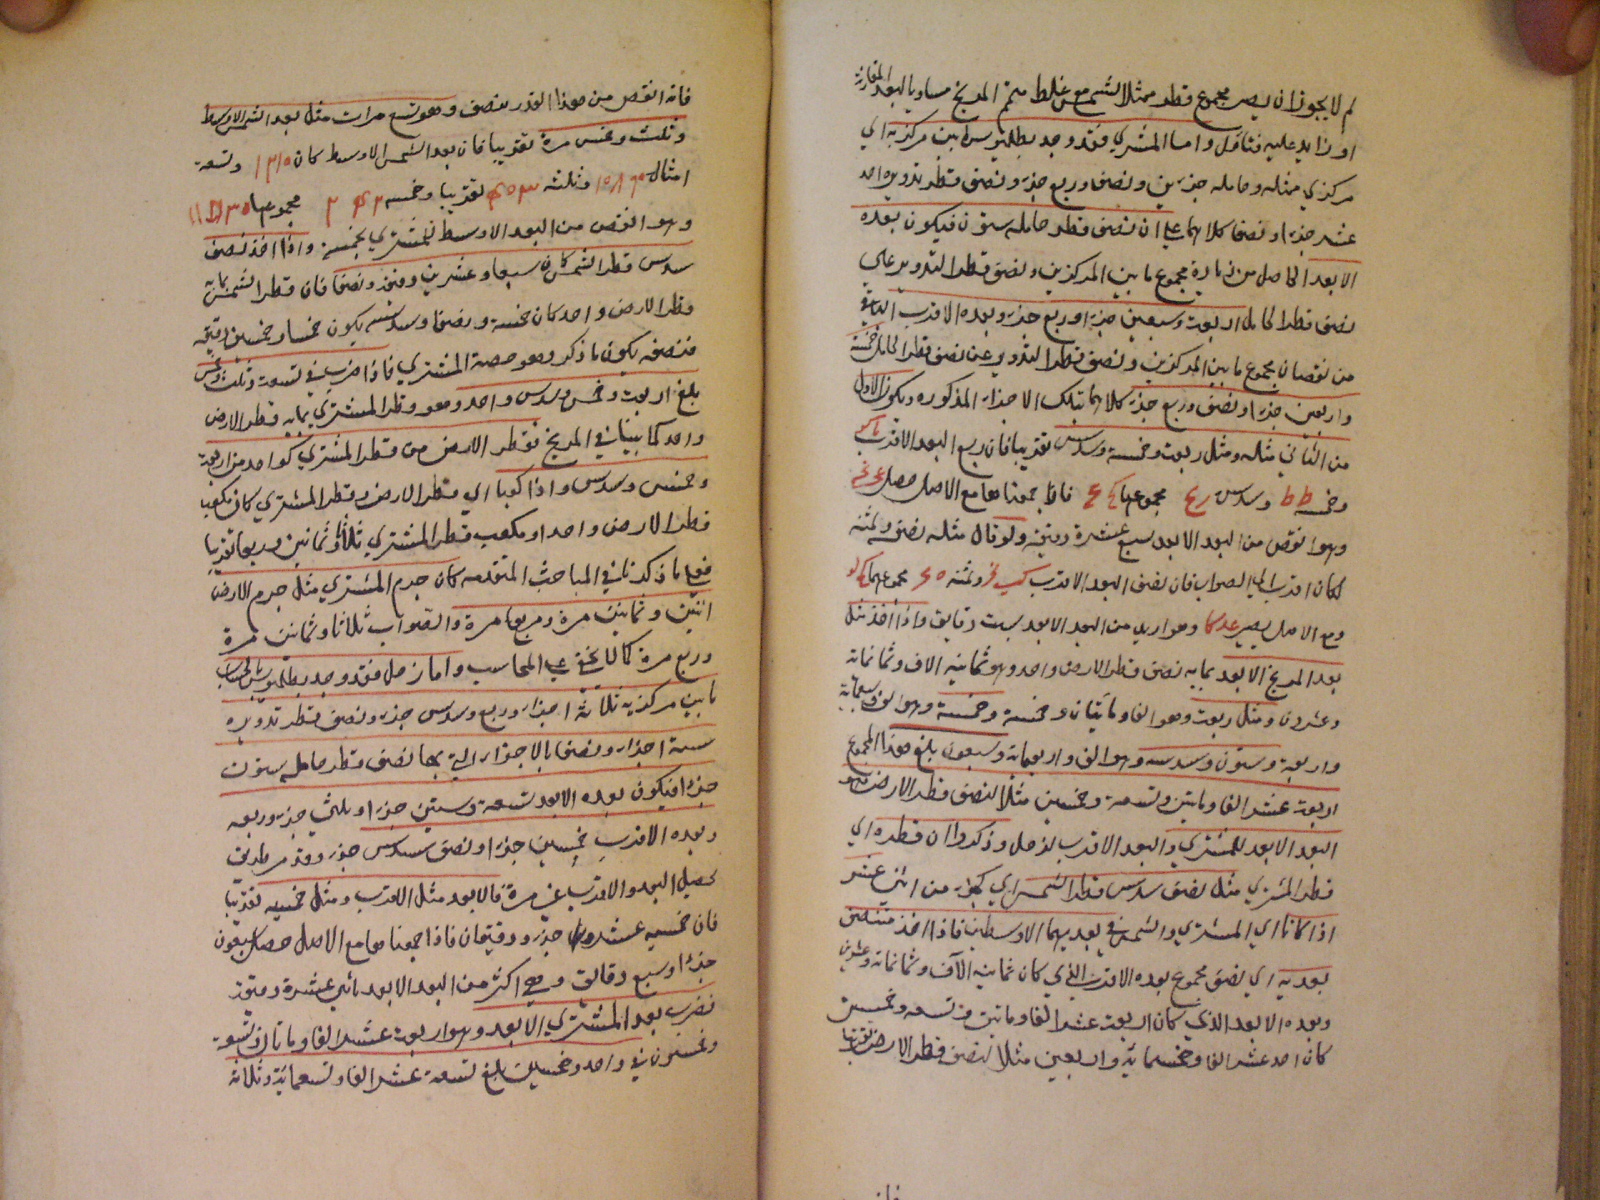 لم لا يجوز ان يصير مجموع قطر ممثل الشمس مع غلظ متمم المريخ مساويا للبعد المقارنة
او زايد عليه فتأمل واما المشتري فقد وجد بطلميوس ما بين مركزيه اي
مركزي ممثله وحامله جزءين ونصف وربع جزء ونصف قطر تدويره احد
عشر جزءا ونصفا كلاهما على ان نصف قطر حامله ستون فيكون بعده
الابعد الحاصل من زيادة مجموع ما بين المركزين ونصف قطر التدوير على
نصف قطر الحامل اربعة وسبعين جزءا وربع جزء وبعده الاقرب الباقي
من نقصان مجموع ما بين المركزين ونصف قطر التدوير عن نصف قطر الحامل خمسة
واربعين جزءا ونصف وربع جزء كلاهما بتلك الاجزاء المذكورة ويكون الاول
من الثاني مثله ومثل ربعه وخمسه وسدس تقريبا فان ربع البعد الاقرب
وخمسه ط ط وسدس مجموعها فاذا جمعناها مع الاصل حصل
وهو انقص من البعد الابعد سبع عشرة دقيقة ولو قال مثله نصفه وثمنه
لكان اقرب الى الصواب فان نصف البعد الاقرب وثمنه مجموعهما
ومع الاصل يصير وهو ازيد من البعد الابعد بست دقايق واذا اخذ مثل
بعد المريخ الابعد بما به نصف قطر الارض واحد وهو ثمانية الاف وثمانمائة
وعشرون ومثل ربعه وهو الفان ومائتان وخمسة وخمسه وهو الف وسبعمائة
واربعة وستون وسدسه وهو الف واربعمائة وسبعون بلغ هذا المجموع
اربعة عشر الفا ومايتين وتسعة وخمسين مثلا لنصف قطر الارض وهو
البعد الابعد للمشتري والبعد الاقرب لزحل وذكروا ان قطره اي
قطر المشتري مثل نصف سدس قطر الشمس اي كجزء من اثني عشر
اذا كانا اي المشتري والشمس في بعديهما الاوسطين فاذا اخذ منتصف
بعديه اي نصف مجموع بعده الاقرب الذي كان ثمانية الاف وثمانمائة وعشرين
وبعده الابعد الذي كان اربعة عشر الفا ومايتين وتسعة وخمسين
كان احد عشر الفا وخمسمائة واربعين مثلا لنصف قطر الارض تقريبا
فانه انقص من هذا القدر بنصف وهو تسع مرات مثل بعد الشمس الاوسط
وثلث وخمس مرة تقريبا فان بعد الشمس الاوسط كان وتسعة
امثاله وثلثه تقريبا وخمسه مجموعها
وهو انقص من البعد الاوسط للمشتري بخمسة واذا اخذ نصف
سدس قطر الشمس كان سبعا وعشرين دقيقة ونصفا فان قطر الشمس بما به
قطر الارض واحد كان خمسة ونصفا وسدسه يكون خمسا وخمسين دقيقة
فنصفه يكون ما ذكر وهو حصة المشتري فاذا ضرب في تسعة وثلث وخمس
بلغ اربعة وخمس وسدس واحد وهو قطر المشتري بما به قطر الارض
واحد كما بينا في المريخ فقطر الارض من قطر المشتري كواحد من اربعة
وخمس وسدس واذا كعبا اي قطر الارض وقطر المشتري كان مكعب
قطر الارض واحدا ومكعب قطر المشتري ثلاثا وثمانين وربعا تقريبا
فعلى ما ذكرنا في المباحث المتقدمة كان جرم المشتري مثل جرم الارض
اثنتين وثمانين مرة وربع مرة والصواب ثلاثا وثمانين مرة
وربع مرة كما لا يخفى على المحاسب واما زحل فقد وجد بطلميوس
ما بين مركزيه ثلاثة اجزاء وربع وسدس جزء ونصف قطر تدويره
ستة اجزاء ونصفا بالاجزاء التي بها نصف قطر حامله ستون
جزءا فيكون بعده الابعد تسعة وستين جزءا وثلثي جزء وربعه
وبعده الاقرب خمسين جزءا ونصف سدس جزء وقد مر طريق
تحصيل البعد والاقرب غير مرة فالابعد مثل الاقرب ومثل خمسيه تقريبا
فان خمسيه عشرون جزء ودقيقتان فاذا جمعناها مع الاصل حصل سبعون
جزءا وسبع دقائق وهي اكثر من البعد الابعد باثني عشرة دقيقة
نضرب بعد المشتري الابعد وهو اربعة عشر الفا ومائتان وتسعة
وخمسون في واحد وخمسين بلغ تسعة عشر الفا وتسعمائة وثلاثة